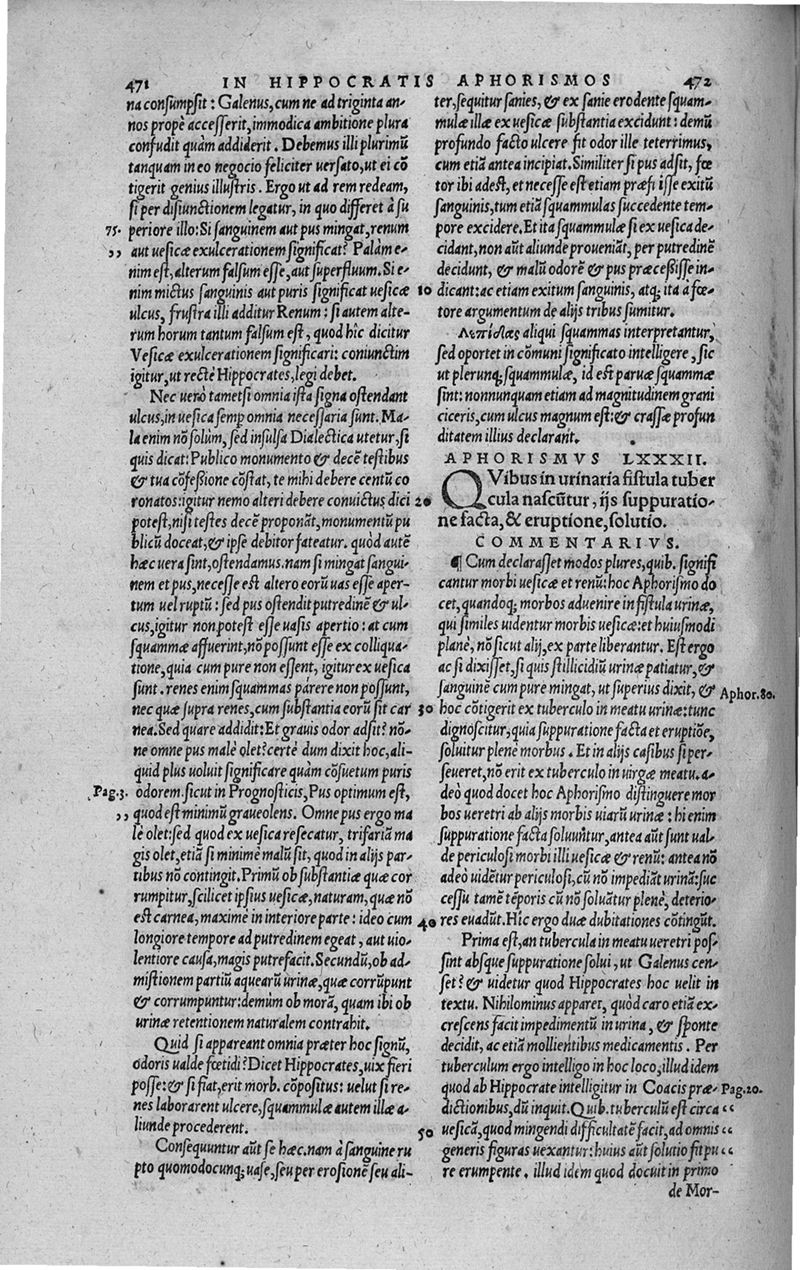 471 IN HIPPOCRATIS APHORISMOS 472
na consumpsit: Galenus, cum ne ad triginta an-
nos propè accesserit, immodica ambitione plura
confudit quàm addiderit. Debemus illi plurimũ
tanquam in eo negocio feliciter versato, ut ei cõ
tigerit genius illustris. Ergo ut ad rem redeam,
si per disiunctionem legatur, in quo differet à su
75. periore illo: Si sanguinem aut pus mingat, renum
,, aut uesicæ exulcerationem significat? Palàm e-
nim est, alterum falsum esse, aut superfluum. Si e-
nim mictus sanguinis aut puris significat uesicæ
ulcus, frustra illi additur Renum: si autem alte-
rum horum tantum falsum est, quod hîc dicitur
Vesicæ exulcerationem significari: coniunctim
igitur, ut rectè Hippocrates, legi debet.
Nec uerò tametsi omnia ista signa ostendant
ulcus, in uesica semp omnia necessaria sunt. Ma-
la enim nõ solùm, sed insulsa Dialectica utetur, si
quis dicat: Publico monumento & decẽ testibus
& tua cõfeßione cõstat, te mihi debere centũ co
ronatos: igitur nemo alteri debere conuictus dici
potest, nisi testes decẽ proponãt, monumentũ pu
blicũ doceat, & ipse debitor fateatur. quòd autẽ
hæc uera sint, ostendamus. nam si mingat sangui-
nem et pus, necesse est altero eorũ uas esse aper-
tum uel ruptũ: sed pus ostendit putredinẽ & ul-
cus, igitur non potest esse uasis apertio: at cum
squammæ affuerint, nõ possunt esse ex colliqua-
tione, quia cum pure non essent, igitur ex uesica
sunt. renes enim squammas parere non possunt,
nec quæ supra renes, cum substantia eorũ sit car
nea. Sed quare addidit: Et grauis odor adsit? nõ-
ne omne pus malè olet? certè dum dixit hoc, ali-
quid plus uoluit significare quàm cõsuetum puris
Pag.3. odorem. sicut in Prognosticis, Pus optimum est,
,, quod est minimũ graueolens. Omne pus ergo ma
lè olet: sed quod ex uesica resecatur, trifariã ma
gis olet, etiã si minimè malũ sit, quod in alijs par-
tibus nõ contingit. Primũ ob substantiã quæ cor
rumpitur, scilicet ipsius uesicæ, naturam, quæ nõ
est carnea, maximè in interiore parte: ideo cum
longiore tempore ad putredinem egeat, aut uio-
lentiore causa, magis putrefacit. Secundũ, ob ad-
mistionem partiũ aquearũ urinæ, quæ corrũpunt
& corrumpuntur: demũm ob morã, quam ibi ob
urinæ retentionem naturalem contrahit.
Quid si appareant omnia præter hoc signũ,
odoris ualde fœtidi? Dicet Hippocrates, uix fieri
posse: & si fiat, erit morb. cõpositus: uelut si re-
nes laborarent ulcere, squammulæ autem illæ a-
liunde procederent.
Consequuntur aũt se hæc. nam à sanguine ru
pto quomodocunq; uase, seu per erosionẽ seu ali-
ter, sequitur sanies, & ex sanie erodente squam-
mulæ illæ ex uesicæ substantia excidunt: demũ
profundo facto ulcere fit odor ille teterrimus,
cum etiã antea incipiat. Similiter si pus adsit, fœ
tor ibi adest, et necesse est etiam præfiisse exitũ
sanguinis, tum etiã squammulas succedente tem-
pore excidere. Et ita squammulæ si ex uesica de-
cidant, non aũt aliunde proueniãt, per putredinẽ
decidunt, & malũ odorẽ & pus præcessisse in-
10 dicant: ac etiam exitum sanguinis, atq; ita à fœ-
tore argumentum de alijs tribus sumitur.
Λεπίδας aliqui squammas interpretantur,
sed oportet in cõmuni significato intelligere, sic
ut plerunq; squammulæ, id est paruæ squammæ
sint: nonnunquam etiam ad magnitudinem grani
ciceris, cum ulcus magnum est: & crassæ profun
ditatem illius declarant.
APHORISMVS LXXXII.
QVibus in urinaria fistula tuber
20 cula nascũtur, ijs suppuratio-
ne facta, & eruptione, solutio.
COMMENTARIVS.
¶ Cum declarasset modos plures, quib. signifi
cantur morbi uesicæ et renũ: hoc Aphorismo do
cet, quandoq; morbos aduenire in fistula urinæ,
qui similes uidentur morbis uesicæ: et huiusmodi
planè, nõ sicut alij, ex parte liberantur. Est ergo
ac si dixisset, si quis stillicidiũ urinæ patiatur, &
sanguinẽ cum pure mingat, ut superius dixit, & Aphor. 80.
30 hoc cõtigerit ex tuberculo in meatu urinæ: tunc
dignoscitur, quia suppuratione facta et eruptiõe,
soluitur plenè morbus. Et in alijs casibus si per-
seueret, nõ erit ex tuberculo in uirgæ meatu. a-
deò quod docet hoc Aphorismo distinguere mor
bos ueretri ab alijs morbis uiarũ urinæ: hi enim
suppuratione facta soluuntur, antea aũt sunt ual-
de periculosi morbi illi uesicæ & renũ: antea nõ
adeò uidẽtur periculosi, cũ nõ impediãt urinã: suc
cessu tamẽ tẽporis cũ nõ soluãtur plenè, deterio-
40 res euadũt. Hîc ergo duæ dubitationes cõtingũt.
Prima est, an tubercula in meatu ueretri pos-
sint absque suppuratione solui, ut Galenus cen-
set? & uidetur quod Hippocrates hoc uelit in
textu. Nihilominus apparet, quòd caro etiã ex-
crescens facit impedimentũ in urina, & sponte
decidit, ac etiã mollientibus medicamentis. Per
tuberculum ergo intelligo in hoc loco, illud idem
quod ab Hippocrate intelligitur in Coacis præ- Pag.20.
dictionibus, dũ inquit. Quib. tuberculũ est circa “
50 uesicã, quod mingendi difficultatẽ facit, ad omnis “
generis figuras uexantur: huius aũt solutio fit pu “
re erumpente. illud idem quod docuit in primo
de Mor-